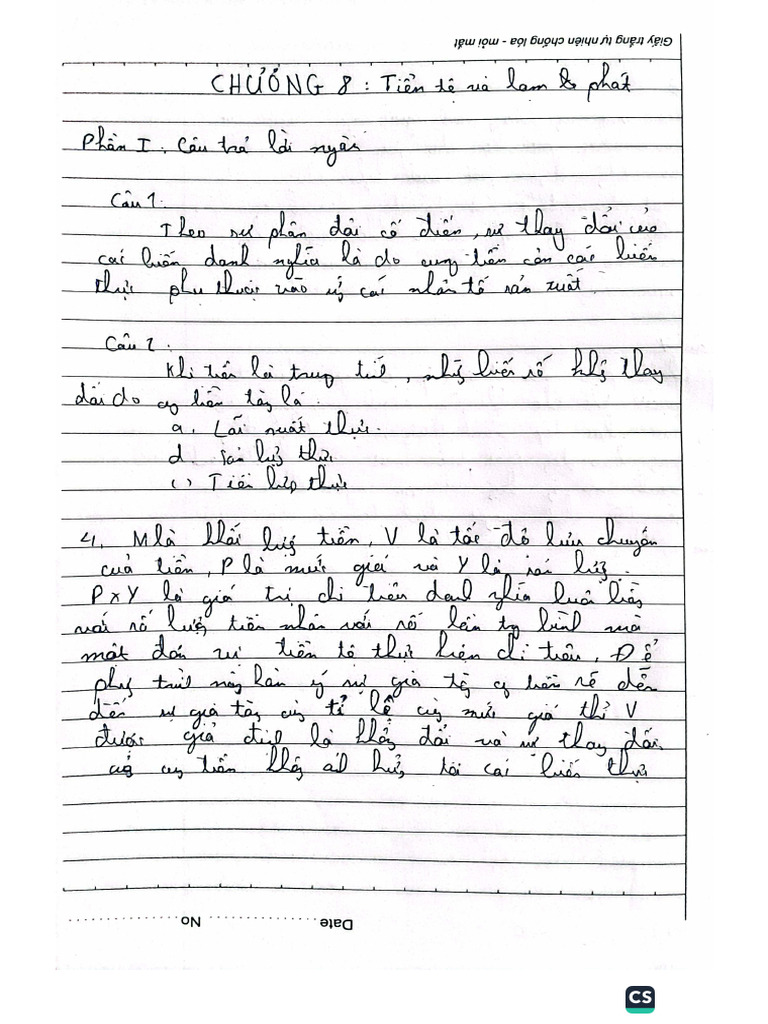 Giấy trắng tự nhiên chống lóa - mỏi mắt
CHƯƠNG 8 : Tiền tệ và lạm phát
Phần I : Câu trả lời ngắn
Câu 1.
Theo sự phân đôi cổ điển, sự thay đổi của
các biến danh nghĩa là do cung tiền còn các biến
thực phụ thuộc vào các nhân tố sản xuất
Câu 2 :
Khi tiền là trung tính, những biến số không thay
đổi do cg tiền tăng là
a. Lãi suất thực.
d. Sản lượng thực
c) Tiền lương thực
4. M là khối lượng tiền, V là tốc độ lưu chuyển
của tiền, P là mức giá và Y là sản lượng.
P x Y là giá trị chi tiêu danh nghĩa luôn bằng
với số lượng tiền nhân với số lần tg bình mà
một đơn vị tiền tệ thực hiện chi tiêu. Để
phg trình này hàm ý sự gia tăng cg tiền sẽ dẫn
đến sự gia tăng cùng tỉ lệ của mức giá thì V
được giả định là không đổi và sự thay đổi
của cg tiền không ảnh hưởng tới các biến thực
Date No
CS